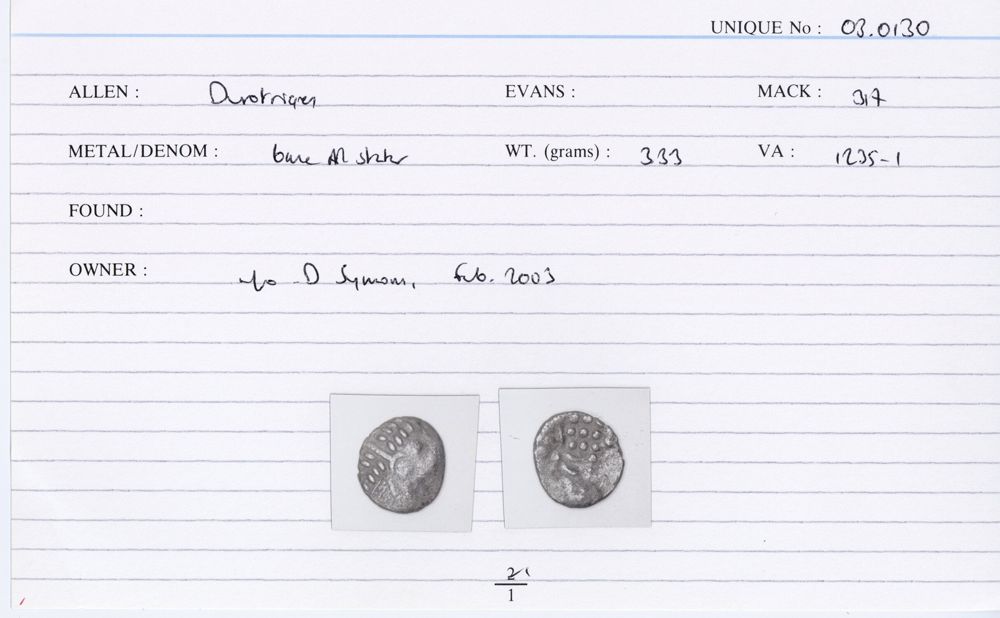 UNIQUE No : 03.0130
ALLEN : Durotriges EVANS : MACK : 317
METAL/DENOM : base AR stater WT. (grams) : 3.33 VA : 1235-1
FOUND :
OWNER : D Symons, Feb. 2003
2
1